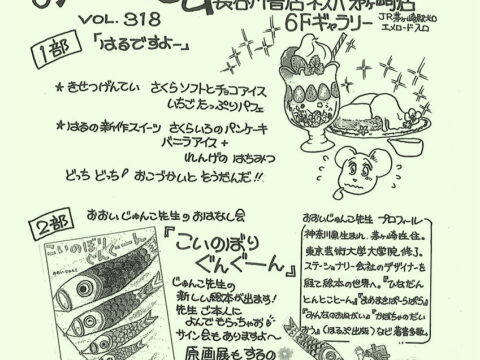 長谷川書店ネスパ茅ヶ崎店
VOL.318
6Fギャラリー
JR茅ヶ崎駅北口
エメロード入口
1部
「はるですよー」
★きせつげんてい さくらソフトとチョコアイス
いちごたっぷりパフェ
★はるの新作スイーツ さくらいろのパンケーキ
バニラアイス+
れんげの はちみつ
どっち どっち! おこづかいと もうだんだ!!
2部
おおいじゅんこ先生のおはなし会
『こいのぼり
ぐんぐーん』
こいのぼり
ぐんぐーん
じゅんこ先生の
新しい絵本が出ます!
先生 ご本人に
よんでもらっちゃお
サイン会もありますよ〜
原画展もするの
おおいじゅんこ先生 プロフィール
神奈川県生まれ、茅ヶ崎在住。
東京芸術大学大学院修了。
ステーショナリー会社のデザイナーを
経て絵本の世界へ。『ひなだん
とんとことーん』『まめまきぱーらぱら』
『みんなのおねがい』『かぼちゃのだい
おう』(ほるぷ出版)など著書多数。